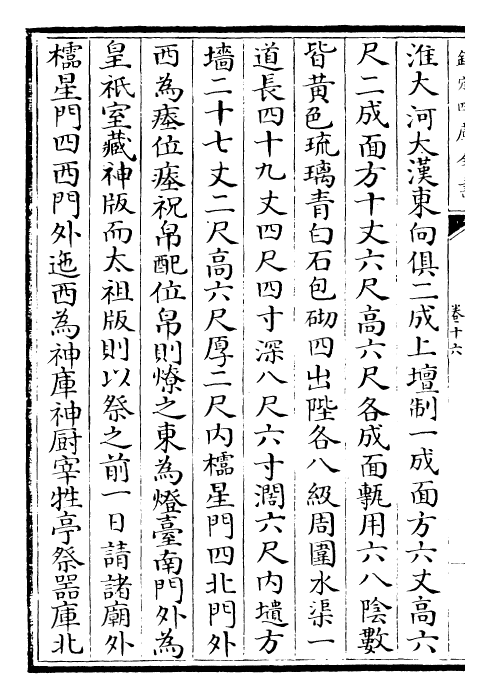 欽定四庫全書
卷十六
淮大河大漢東向俱二成上壇制一成面方六丈高六
尺二成面方十丈六尺高六尺各成面甎用六八陰數
皆黃色琉璃青白石包砌四出陛各八級周圍水渠一
道長四十九丈四尺四寸深八尺六寸濶六尺内壝方
墻二十七丈二尺高六尺厚二尺内櫺星門四北門外
西為瘞位瘞祝帛配位帛則燎之東為燈臺南門外為
皇祇室藏神版而太祖版則以祭之前一日請諸廟外
櫺星門四西門外迤西為神庫神厨宰牲亭祭器庫北